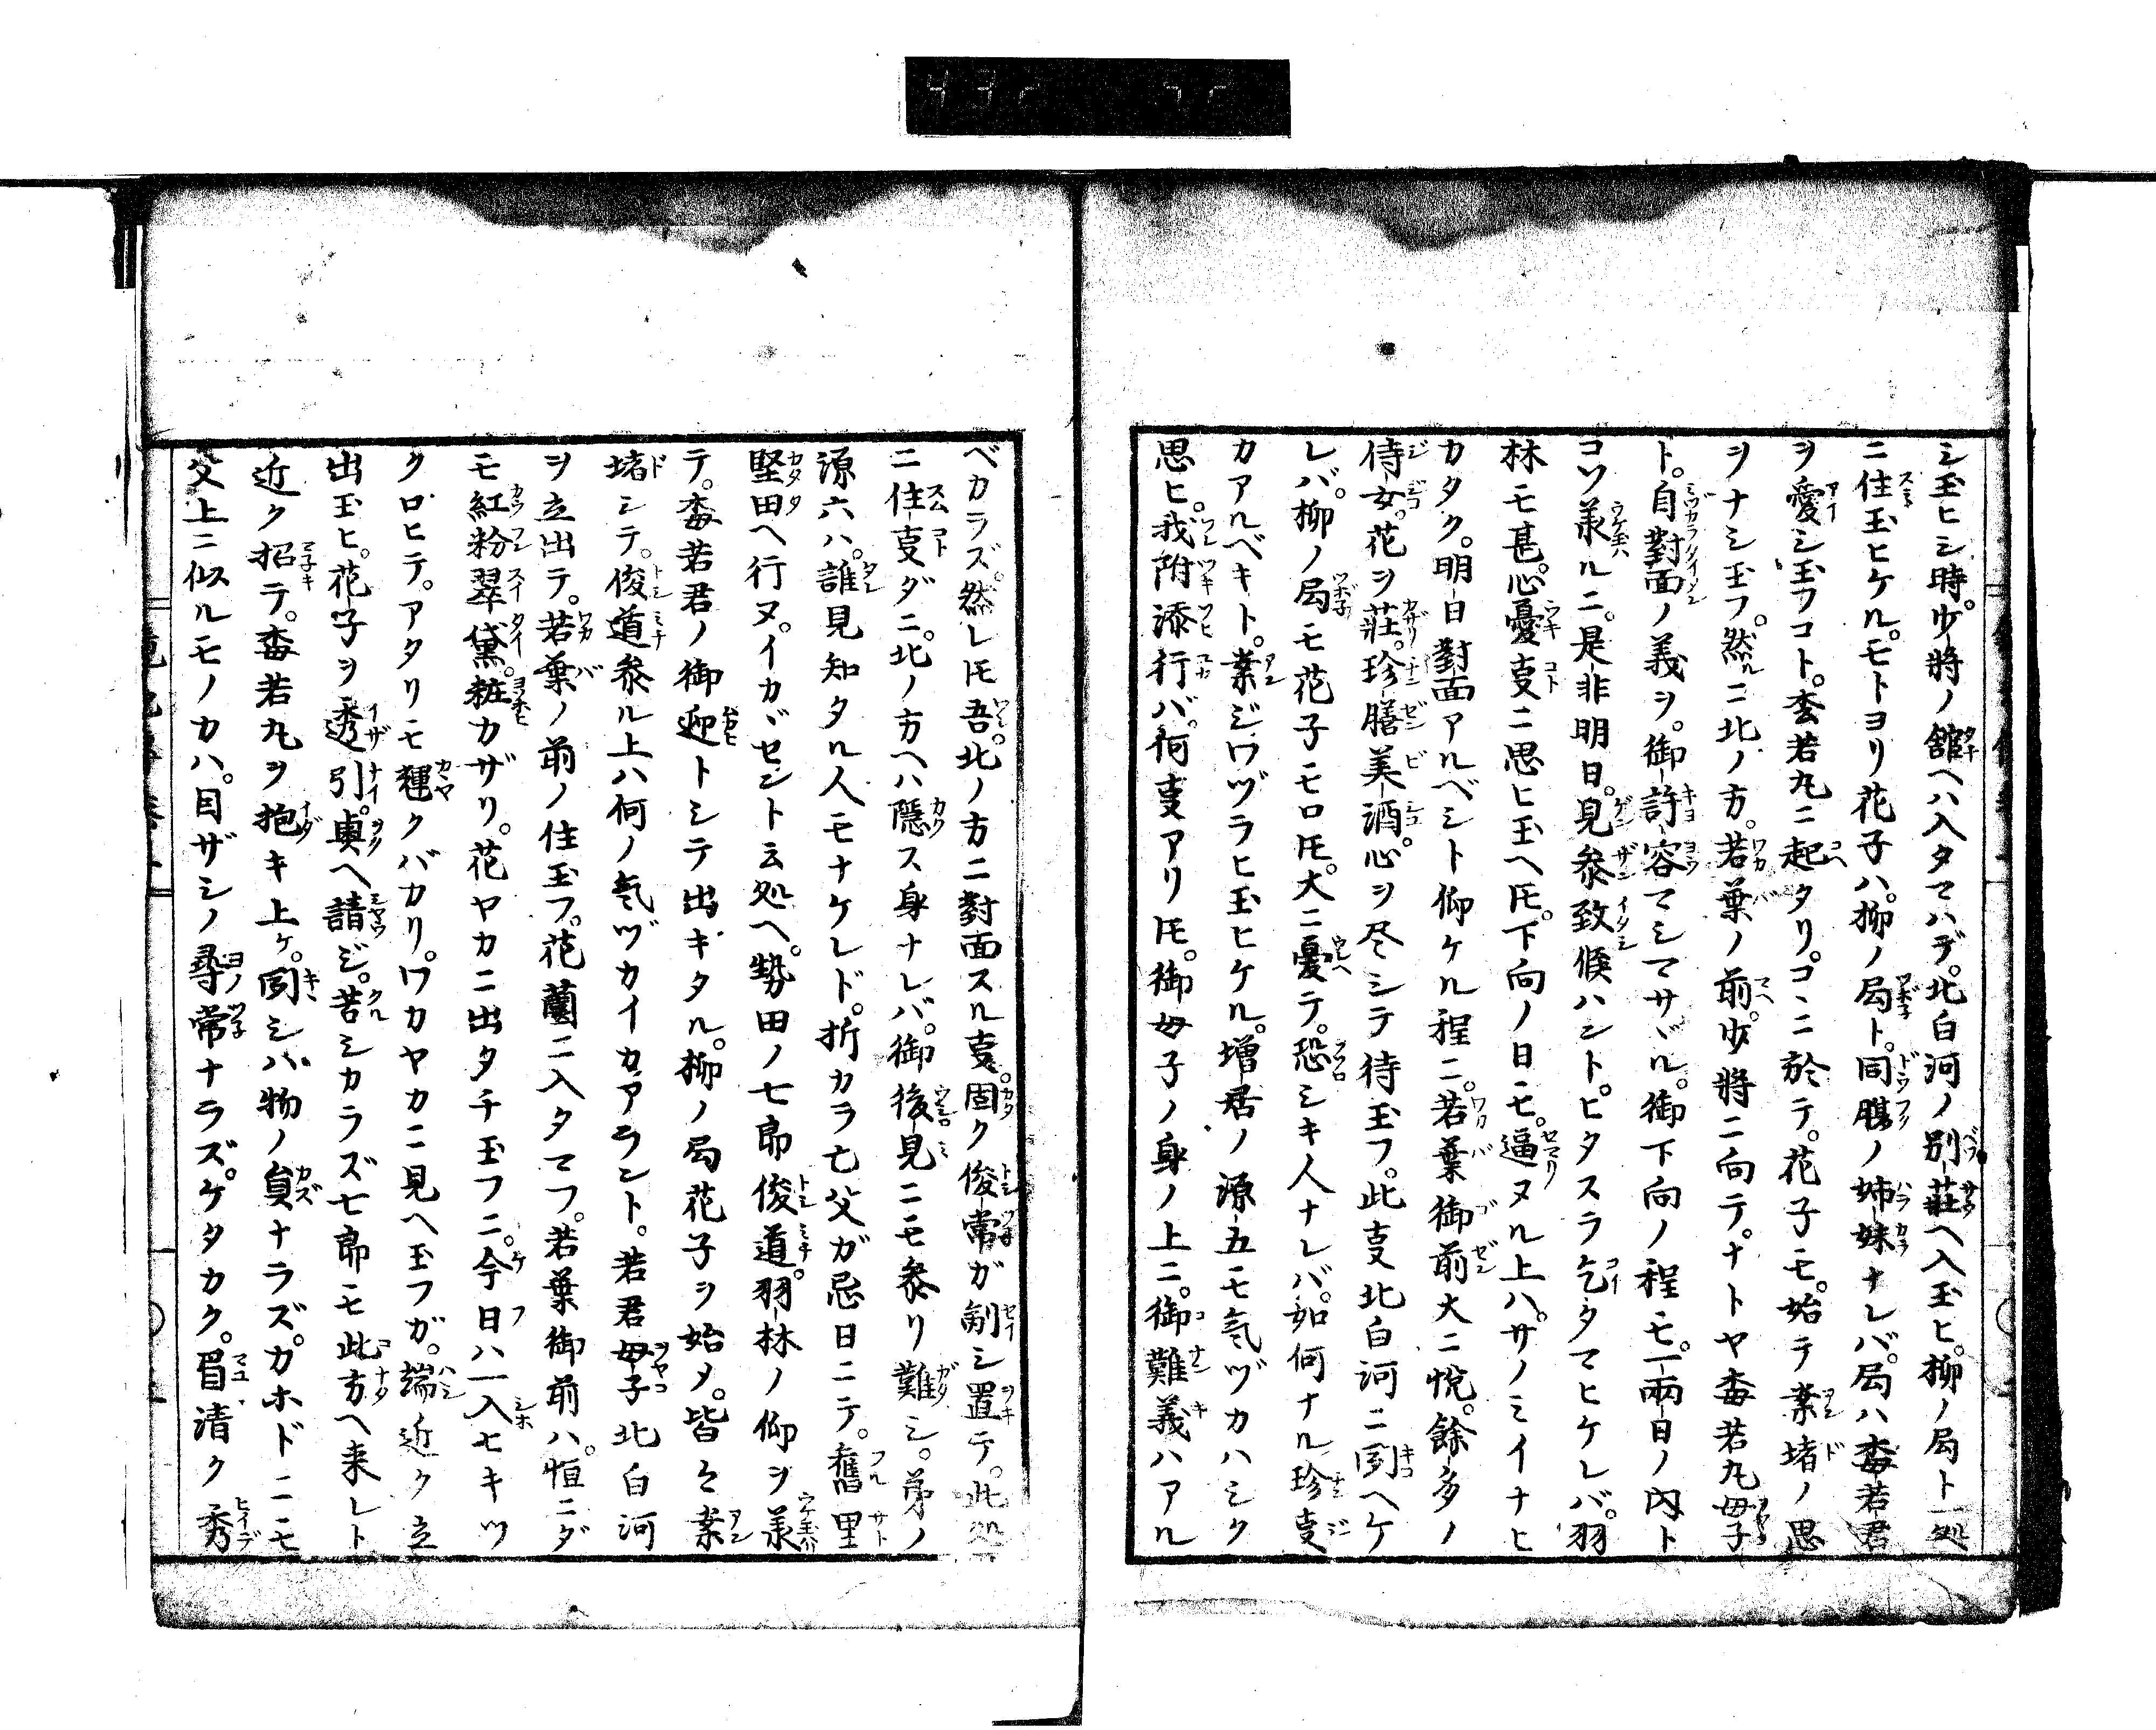 シ玉ヒシ時。少將ノ舘ヘハ入タマハデ。北白河ノ別莊ヘ入玉ヒ。柳ノ局ト一処
ニ住玉ヒケル。モトヨリ花子ハ。柳ノ局ト。同腹ノ姉妹ナレバ。局ハ梅若君
ヲ愛シ玉フコト。梅若丸ニ起タリ。コヽニ於テ。花子モ。始テ案堵ノ思
ヲナシ玉フ。然ルニ北ノ方。若葉ノ前。少將ニ向テ。ナトヤ梅若丸母子
ト。自對面ノ義ヲ。御許容マシマサヾル。御下向ノ程モ。一兩日ノ内ト
コソ承ルニ。是非明日。見參致候ハントヒタスラ乞タマヒケレバ。羽
林モ甚。心憂叓ニ思ヒ玉ヘ𪜈。下向ノ日モ。逼ヌル上ハ。サノミイナヒ
カタク。明日對面アルベシト仰ケル程ニ。若葉御前大ニ悦。餘多ノ
侍女。花ヲ莊。珍膳美酒。心ヲ尽シテ待玉フ。此叓北白河ニ聞ヘケ
レバ。柳ノ局モ花子モロ𪜈。大ニ憂テ。恐シキ人ナレバ。如何ナル珍叓
カアルベキト。案ジワヅラヒ玉ヒケル。増居ノ源五モ氣ヅカハシク
思ヒ。我附添行バ。何叓アリ𪜈。御母子ノ身ノ上ニ。御難義ハアル
ベカラズ。然レ𪜈吾。北ノ方ニ對面スル叓。固ク俊常ガ制シ置テ。此処
ニ住叓ダニ。北ノ方ヘハ隱ス身ナレバ。御後見ニモ參リ難シ。弟ノ
源六ハ。誰見知タル人モナケレド。折カラ亡父ガ忌日ニテ。舊里
堅田ヘ行ヌ。イカヾセントエ処ヘ。勢田ノ七郎俊道。羽林ノ仰ヲ承
テ。梅若君ノ御迎トシテ出キタル。柳ノ局花子ヲ始メ。皆々案
堵シテ。俊道參ル上ハ何ノ氣ヅカイカアラント。若君母子北白河
ヲ立出テ。若葉ノ前ノ住玉フ。花薗ニ入タマフ。若葉御前ハ。恒ニダ
モ紅粉翠黛。粧カザリ。花ヤカニ出タチ玉フニ。今日ハ一入セキツ
クロヒテ。アタリモ耀クバカリ。ワカヤカニ見ヘ玉フガ。端近ク立
出玉ヒ。花子ヲ透引。奧ヘ請ジ。苦シカラズ七郎モ此方ヘ来レト
近ク招テ。梅若丸ヲ抱キ上ケ。聞シバ物ノ員ナラズ。カホドニモ
父上ニ似ルモノカハ。目ザシノ尋常ナラズ。ケタカク。眉清ク秀